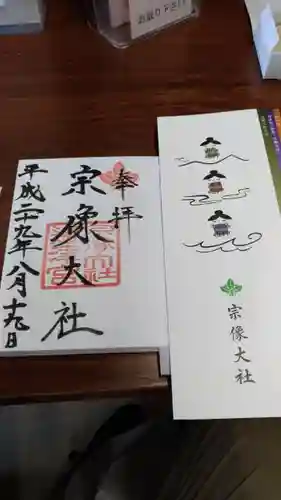 お取り下さい
奉拝
宗像大社
平成二十九年八月十九日
宗像大社